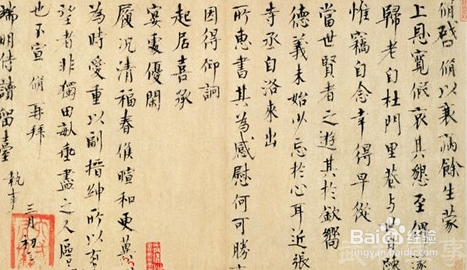 脩啓脩以衰病餘生蒙
上恩寬假哀其懇至俾遂
歸老自杜門里巷與世
惟竊自念幸得早從
當世賢者之遊其於欽嚮
德義未始少忘於心耳近張
寺丞自洛來出
所惠書其為感慰何可勝
因得仰詢
起居喜承
宴處優閑
履況清福春候暄和更冀
為時愛重以副搢紳所以有
望者非獨田畝垂盡之人區
也不宣脩再拜
端明侍讀留臺 執事
三月初